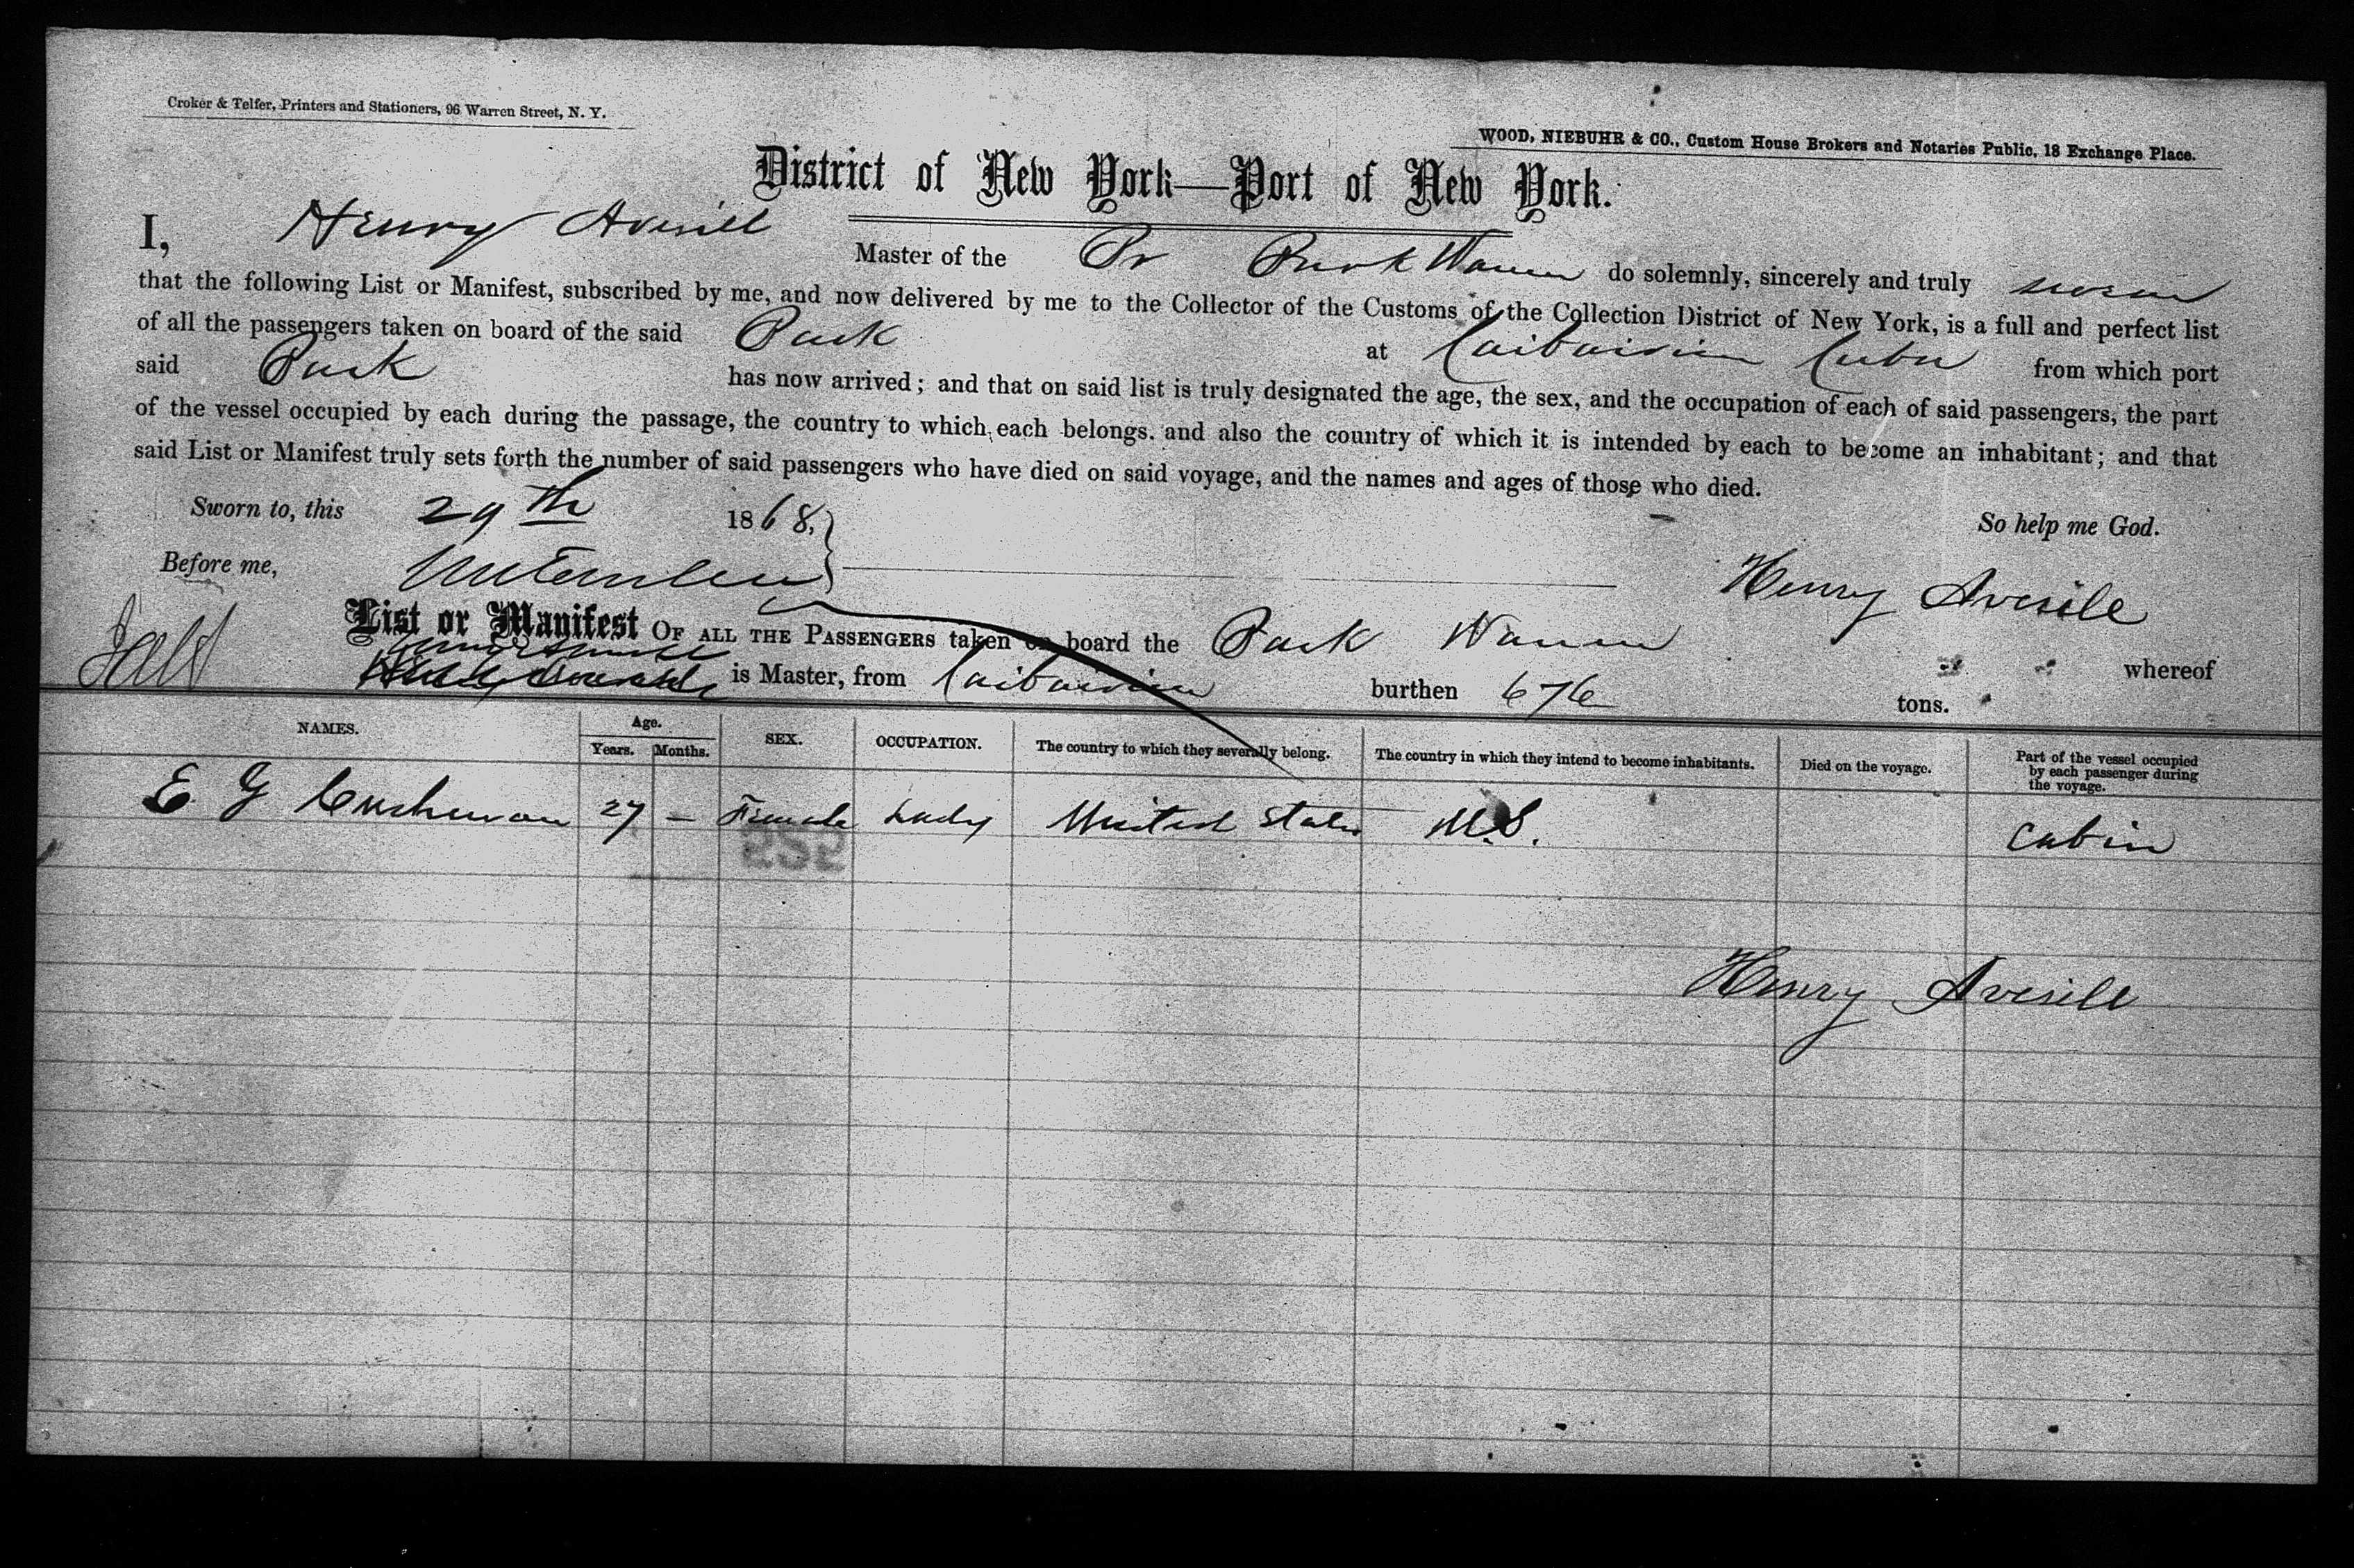 Croker & Telfer, Printers and Stationers, 96 Warren Street, N. Y.
WOOD, NIEBUHR & CO., Custom House Brokers and Notaries Public, 18 Exchange Place.
District of New York—Port of New York.
I, Henry Averill Master of the Br Bark do solemnly, sincerely and truly swear
that the following List or Manifest, subscribed by me, and now delivered by me to the Collector of the Customs of the Collection District of New York, is a full and perfect list
of all the passengers taken on board of the said Bark at Caibarien Cuba from which port
said Bark has now arrived; and that on said list is truly designated the age, the sex, and the occupation of each of said passengers, the part
of the vessel occupied by each during the passage, the country to which each belongs. and also the country of which it is intended by each to become an inhabitant; and that
said List or Manifest truly sets forth the number of said passengers who have died on said voyage, and the names and ages of those who died.
Sworn to, this 29th 1868, So help me God.
Before me, Henry Averill
List or Manifest OF ALL THE PASSENGERS taken on board the Bark whereof
is Master, from Caibarien burthen 676 tons.
NAMES. Age. Years. Months. SEX. OCCUPATION. The country to which they severally belong. The country in which they intend to become inhabitants. Died on the voyage. Part of the vessel occupied by each passenger during the voyage.
E G Cushman 27 — Female Lady United States U.S. Cabin
Henry Averill